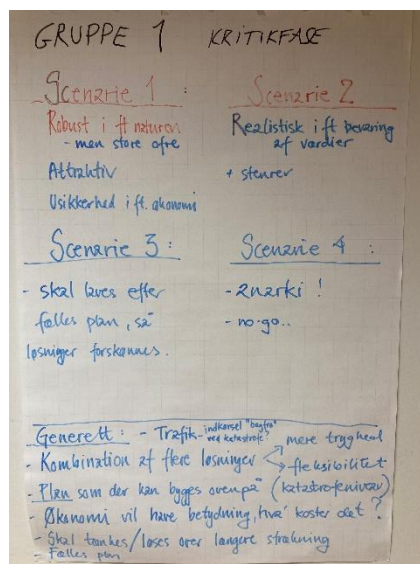 GRUPPE 1 KRITIKFASE
Scenarie 1 :
Robust i ft naturen
- men store ofre
Attraktiv
Usikkerhed i ft. økonomi
Scenarie 2
Realistisk i ft bevaring
af værdier
+ stenrev
Scenarie 3 :
- skal laves efter
fælles plan, så
løsninger forskønnes.
Scenarie 4 :
- anarki !
- no-go..
Generelt : - Trafik - indkørsel "bagfra"
ved katastrofe?
- Kombination af flere løsninger
mere tryghed
fleksibilitet
- Plan som der kan bygges ovenpå (katastrofeniveau)
- Økonomi vil have betydning, hva' koster det ?
- Skal tænkes/løses over længere strækning
- Fælles plan